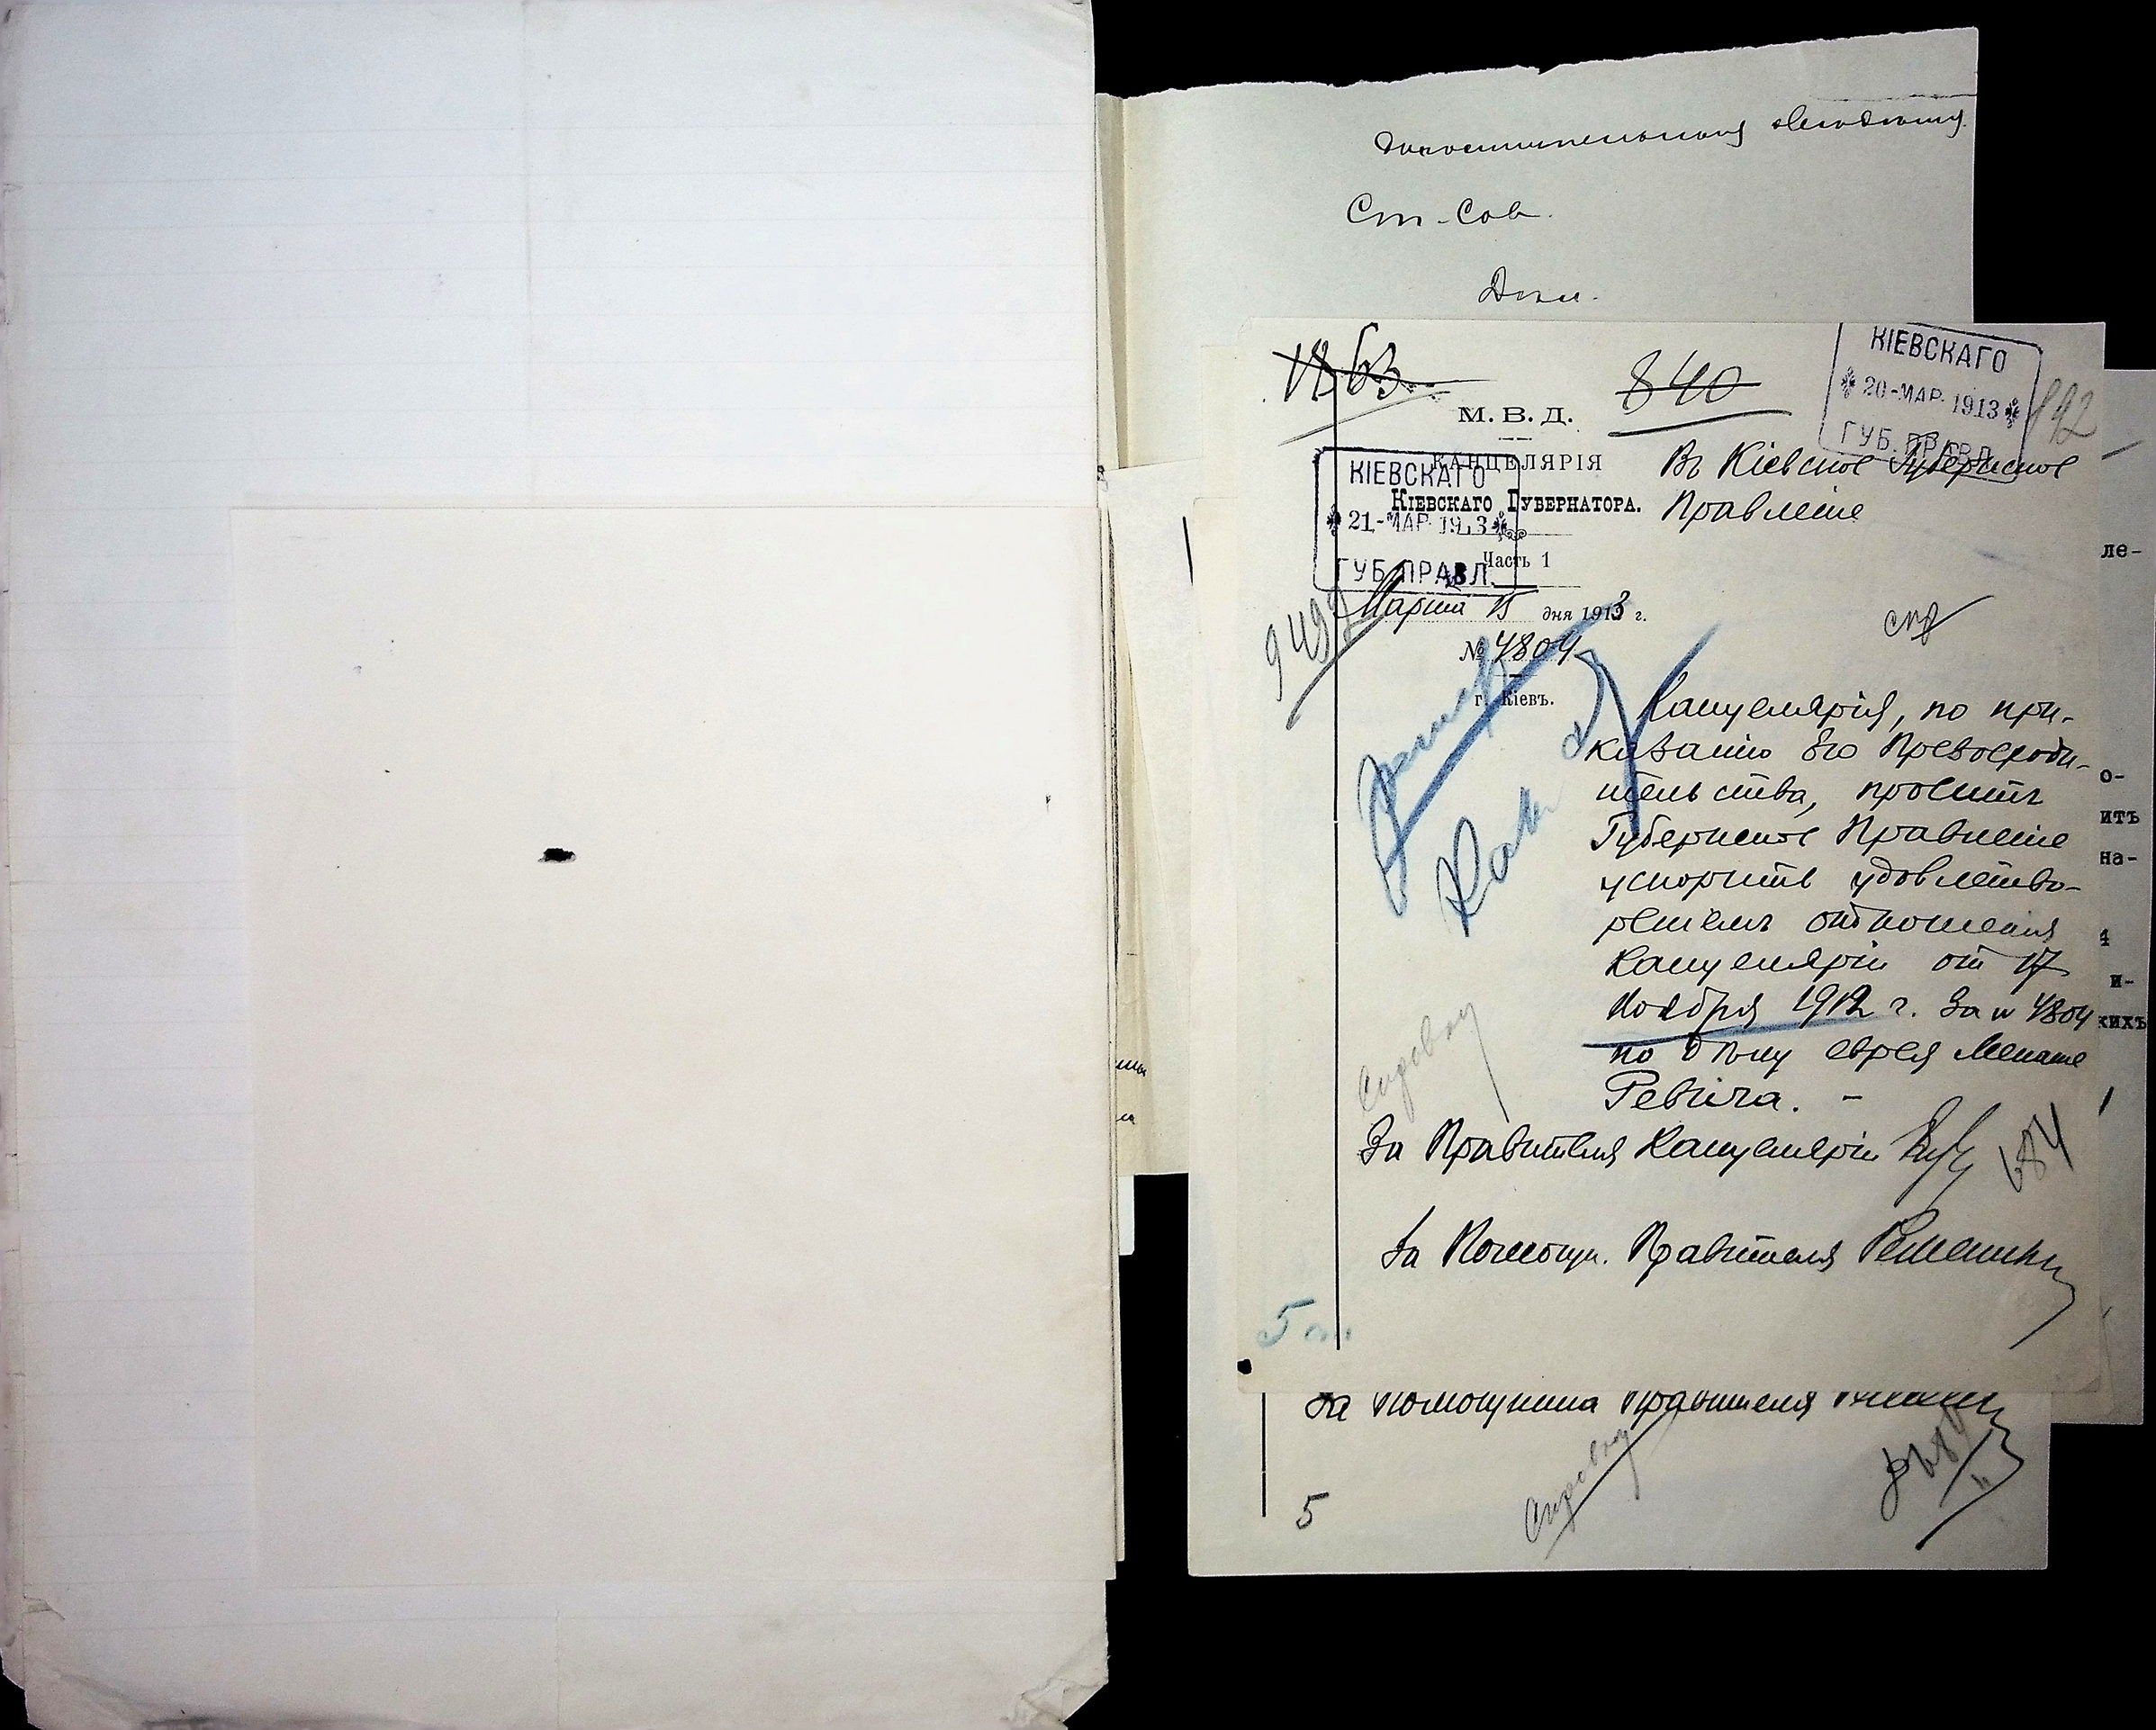 Ст-Сов.
1863
840
М. В. Д.
КАНЦЕЛЯРІЯ
КІЕВСКАГО ГУБЕРНАТОРА.
Часть 1
Марта 15 дня 1913 г.
№ 4804
г. Кіевъ.
КІЕВСКАГО
20-МАР. 1913
ГУБ. ПРАВЛ.
КІЕВСКАГО
21-МАР. 1913
ГУБ. ПРАВЛ.
Въ Кіевское Губернское
Правленіе
спр
Канцелярія, по при-
казанію Его Превосходи-
тельства, проситъ
Губернское Правленіе
ускорить удовлетво-
реніемъ отношенія
Канцеляріи отъ 17
Ноября 1912 г. за № 4804
по дѣлу еврея Менаше
Ревича. –
За Правителя Канцеляріи
684
За Помощн. Правителя
Справку
За Помощника Правителя
Справку
5
ле-
о-
итъ
на-
4
и-
кихъ